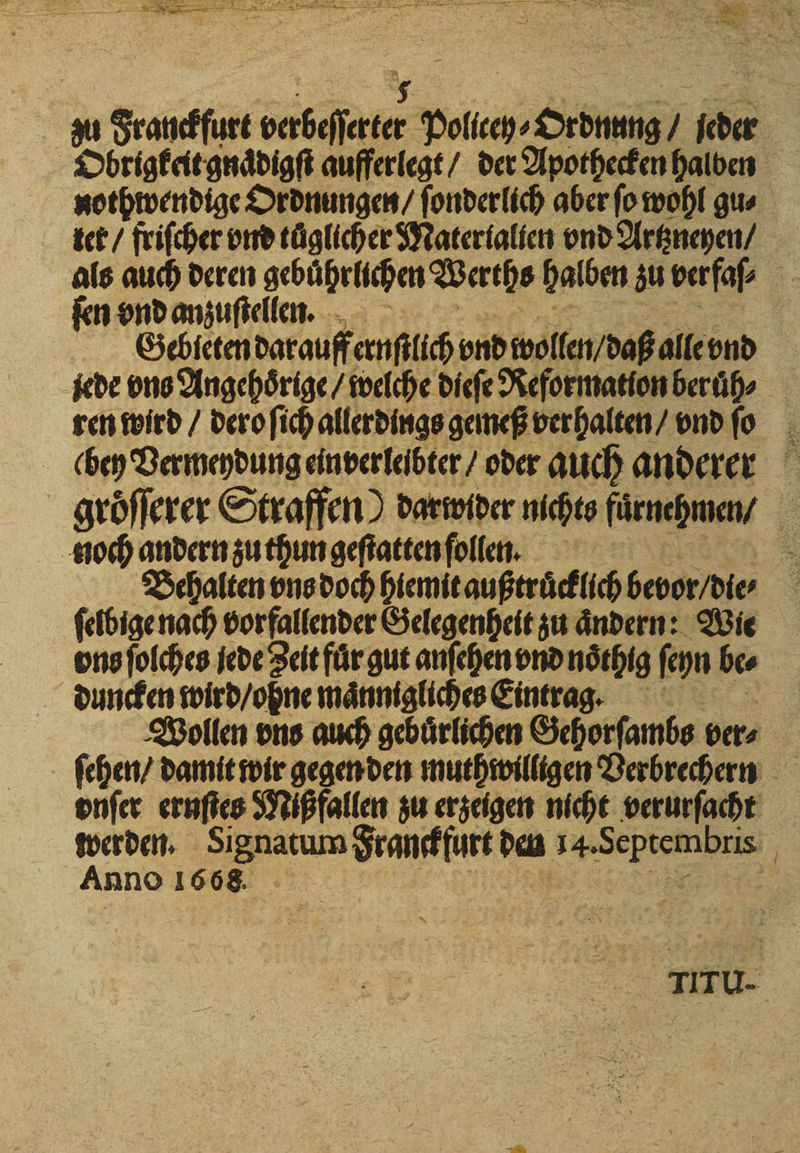 5
zu Franckfurt verbesserter Policey-Ordnung / jeder
Obrigkeit gnädigst aufferlegt / der Apothecken halben
nothwendige Ordnungen / sonderlich aber so wohl gu-
ter / frischer vnd täglicher Materialien vnd Artzneyen /
als auch deren gebührlichen Werths halben zu verfas-
sen vnd anzustellen.
Gebieten darauff ernstlich vnd wollen / daß alle vnd
jede vns Angehörige / welche diese Reformation berüh-
ren wird / dero sich allerdings gemeß verhalten / vnd so
(bey Vermeydung einverleibter / oder auch anderer
grösserer Straffen) darwider nichts fürnehmen /
noch andern zu thun gestatten sollen.
Behalten vns doch hiemit außtrücklich bevor / die-
selbige nach vorfallender Gelegenheit zu ändern: Wie
vns solches jede Zeit für gut ansehen vnd nöthig seyn be-
duncken wird / ohne männigliches Eintrag.
Wollen vns auch gebürlichen Gehorsambs ver-
sehen / damit wir gegen den muthwilligen Verbrechern
vnser ernstes Mißfallen zu erzeigen nicht verursacht
werden. Signatum Franckfurt den 14. Septembris
Anno 1668.
TITU-